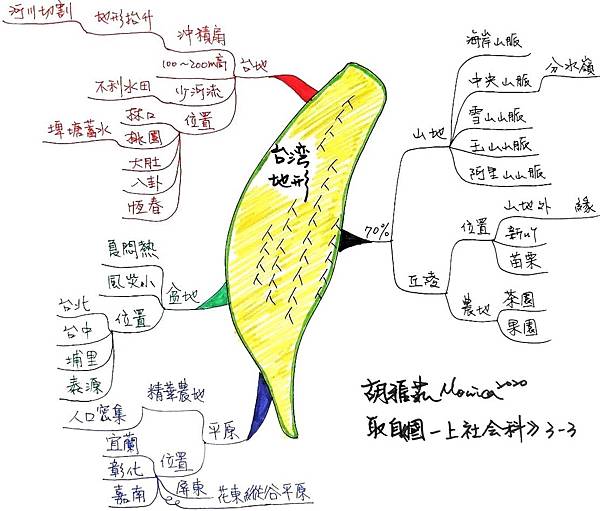 台湾
地形
70%
山地
海岸山脈
中央山脈
分水嶺
雪山山脈
玉山山脈
阿里山山脈
丘陵
位置
山地外 緣
新竹
苗栗
農地
茶園
果園
台地
沖積扇
地形抬升
河川切割
100～200m高
少河流
不利水田
位置
林口
桃園
埤塘蓄水
大肚
八卦
恆春
盆地
夏悶熱
風災小
位置
台北
台中
埔里
泰源
平原
精華農地
人口密集
位置
宜蘭
彰化
嘉南
屏東
花東縱谷平原
Monica 2020
取自國一上社会科》3-3